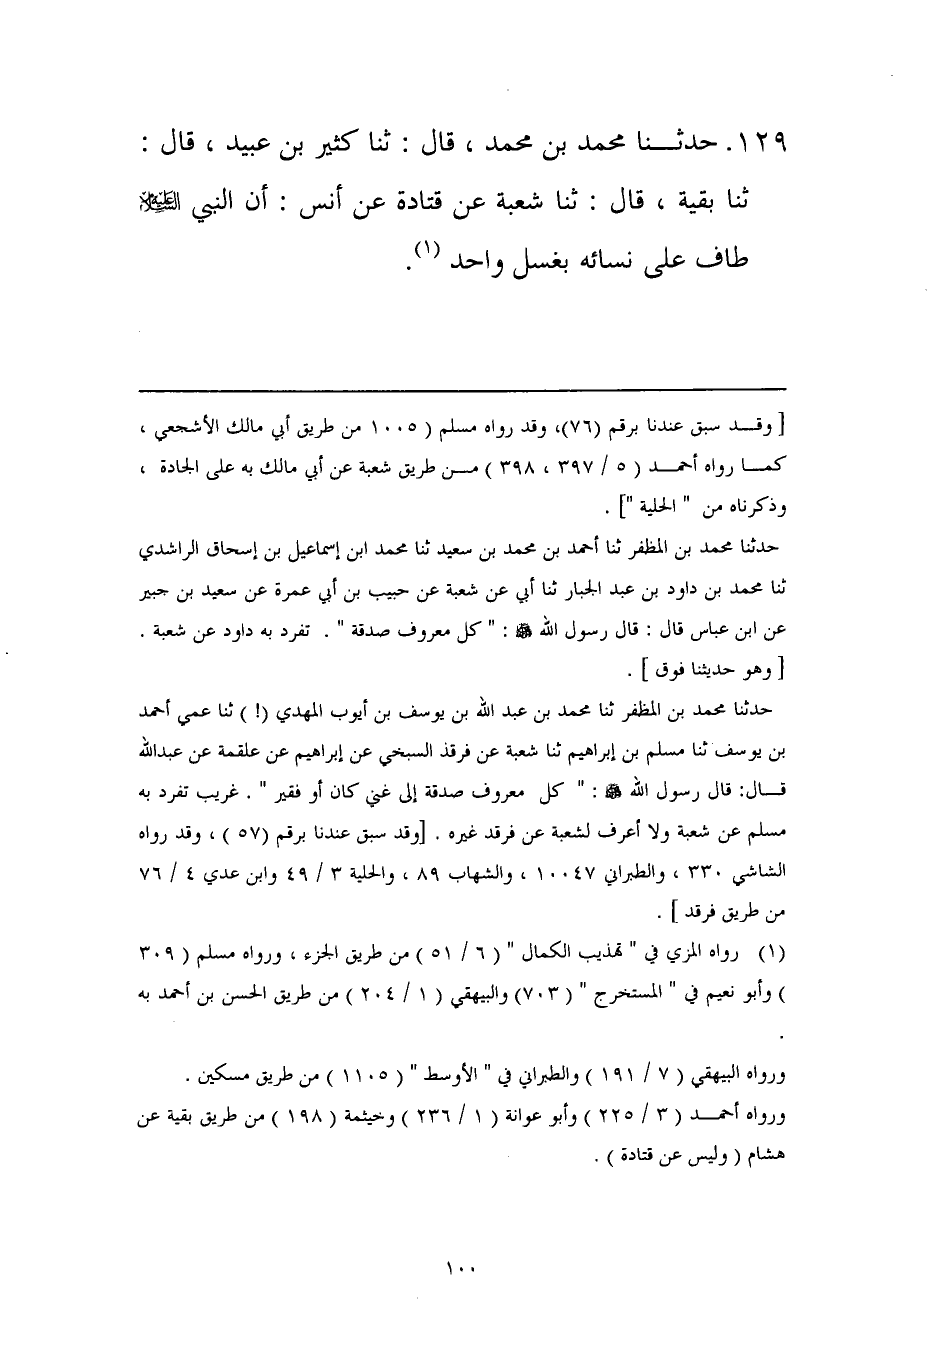 ١٢٩. حدثـــنا محمد بن محمد ، قال : ثنا كثير بن عبيد ، قال :
ثنا بقية ، قال : ثنا شعبة عن قتادة عن أنس : أن النبي ﷺ
طاف على نسائه بغسل واحد (١).
[ وقـــد سبق عندنا برقم (٧٦)، وقد رواه مسلم ( ١٠٠٥ من طريق أبي مالك الأشجعي ،
كمـــا رواه أحمـــد ( ٥ / ٣٩٧ ، ٣٩٨ ) مـــن طريق شعبة عن أبي مالك به على الجادة ،
وذكرناه من " الحلية "] .
حدثنا محمد بن المظفر ثنا أحمد بن محمد بن سعيد ثنا محمد ابن إسماعيل بن إسحاق الراشدي
ثنا محمد بن داود بن عبد الجبار ثنا أبي عن شعبة عن حبيب بن أبي عمرة عن سعيد بن جبير
عن ابن عباس قال : قال رسول الله ﷺ : " كل معروف صدقة " . تفرد به داود عن شعبة .
[ وهو حديثنا فوق ] .
حدثنا محمد بن المظفر ثنا محمد بن عبد الله بن يوسف بن أيوب المهدي (! ) ثنا عمي أحمد
بن يوسف ثنا مسلم بن إبراهيم ثنا شعبة عن فرقذ السبخي عن إبراهيم عن علقمة عن عبدالله
قـــال: قال رسول الله ﷺ : " كل معروف صدقة إلى غني كان أو فقير " . غريب تفرد به
مسلم عن شعبة ولا أعرف لشعبة عن فرقد غيره . [وقد سبق عندنا برقم (٥٧ ) ، وقد رواه
الشاشي ٣٣٠ ، والطبراني ١٠٠٤٧ ، والشهاب ٨٩ ، والحلية ٣ / ٤٩ وابن عدي ٤ / ٧٦
من طريق فرقد ] .
(١) رواه المزي في " تهذيب الكمال " ( ٦ / ٥١ ) من طريق الجزء ، ورواه مسلم ( ٣٠٩
) وأبو نعيم في " المستخرج " ( ٧٠٣) والبيهقي ( ١ / ٢٠٤ ) من طريق الحسن بن أحمد به
.
ورواه البيهقي ( ٧ / ١٩١ ) والطبراني في " الأوسط " ( ١١٠٥ ) من طريق مسكين .
ورواه أحمـــد ( ٣ / ٢٢٥ ) وأبو عوانة ( ١ / ٢٣٦ ) وخيثمة ( ١٩٨ ) من طريق بقية عن
هشام ( وليس عن قتادة ) .
١٠٠